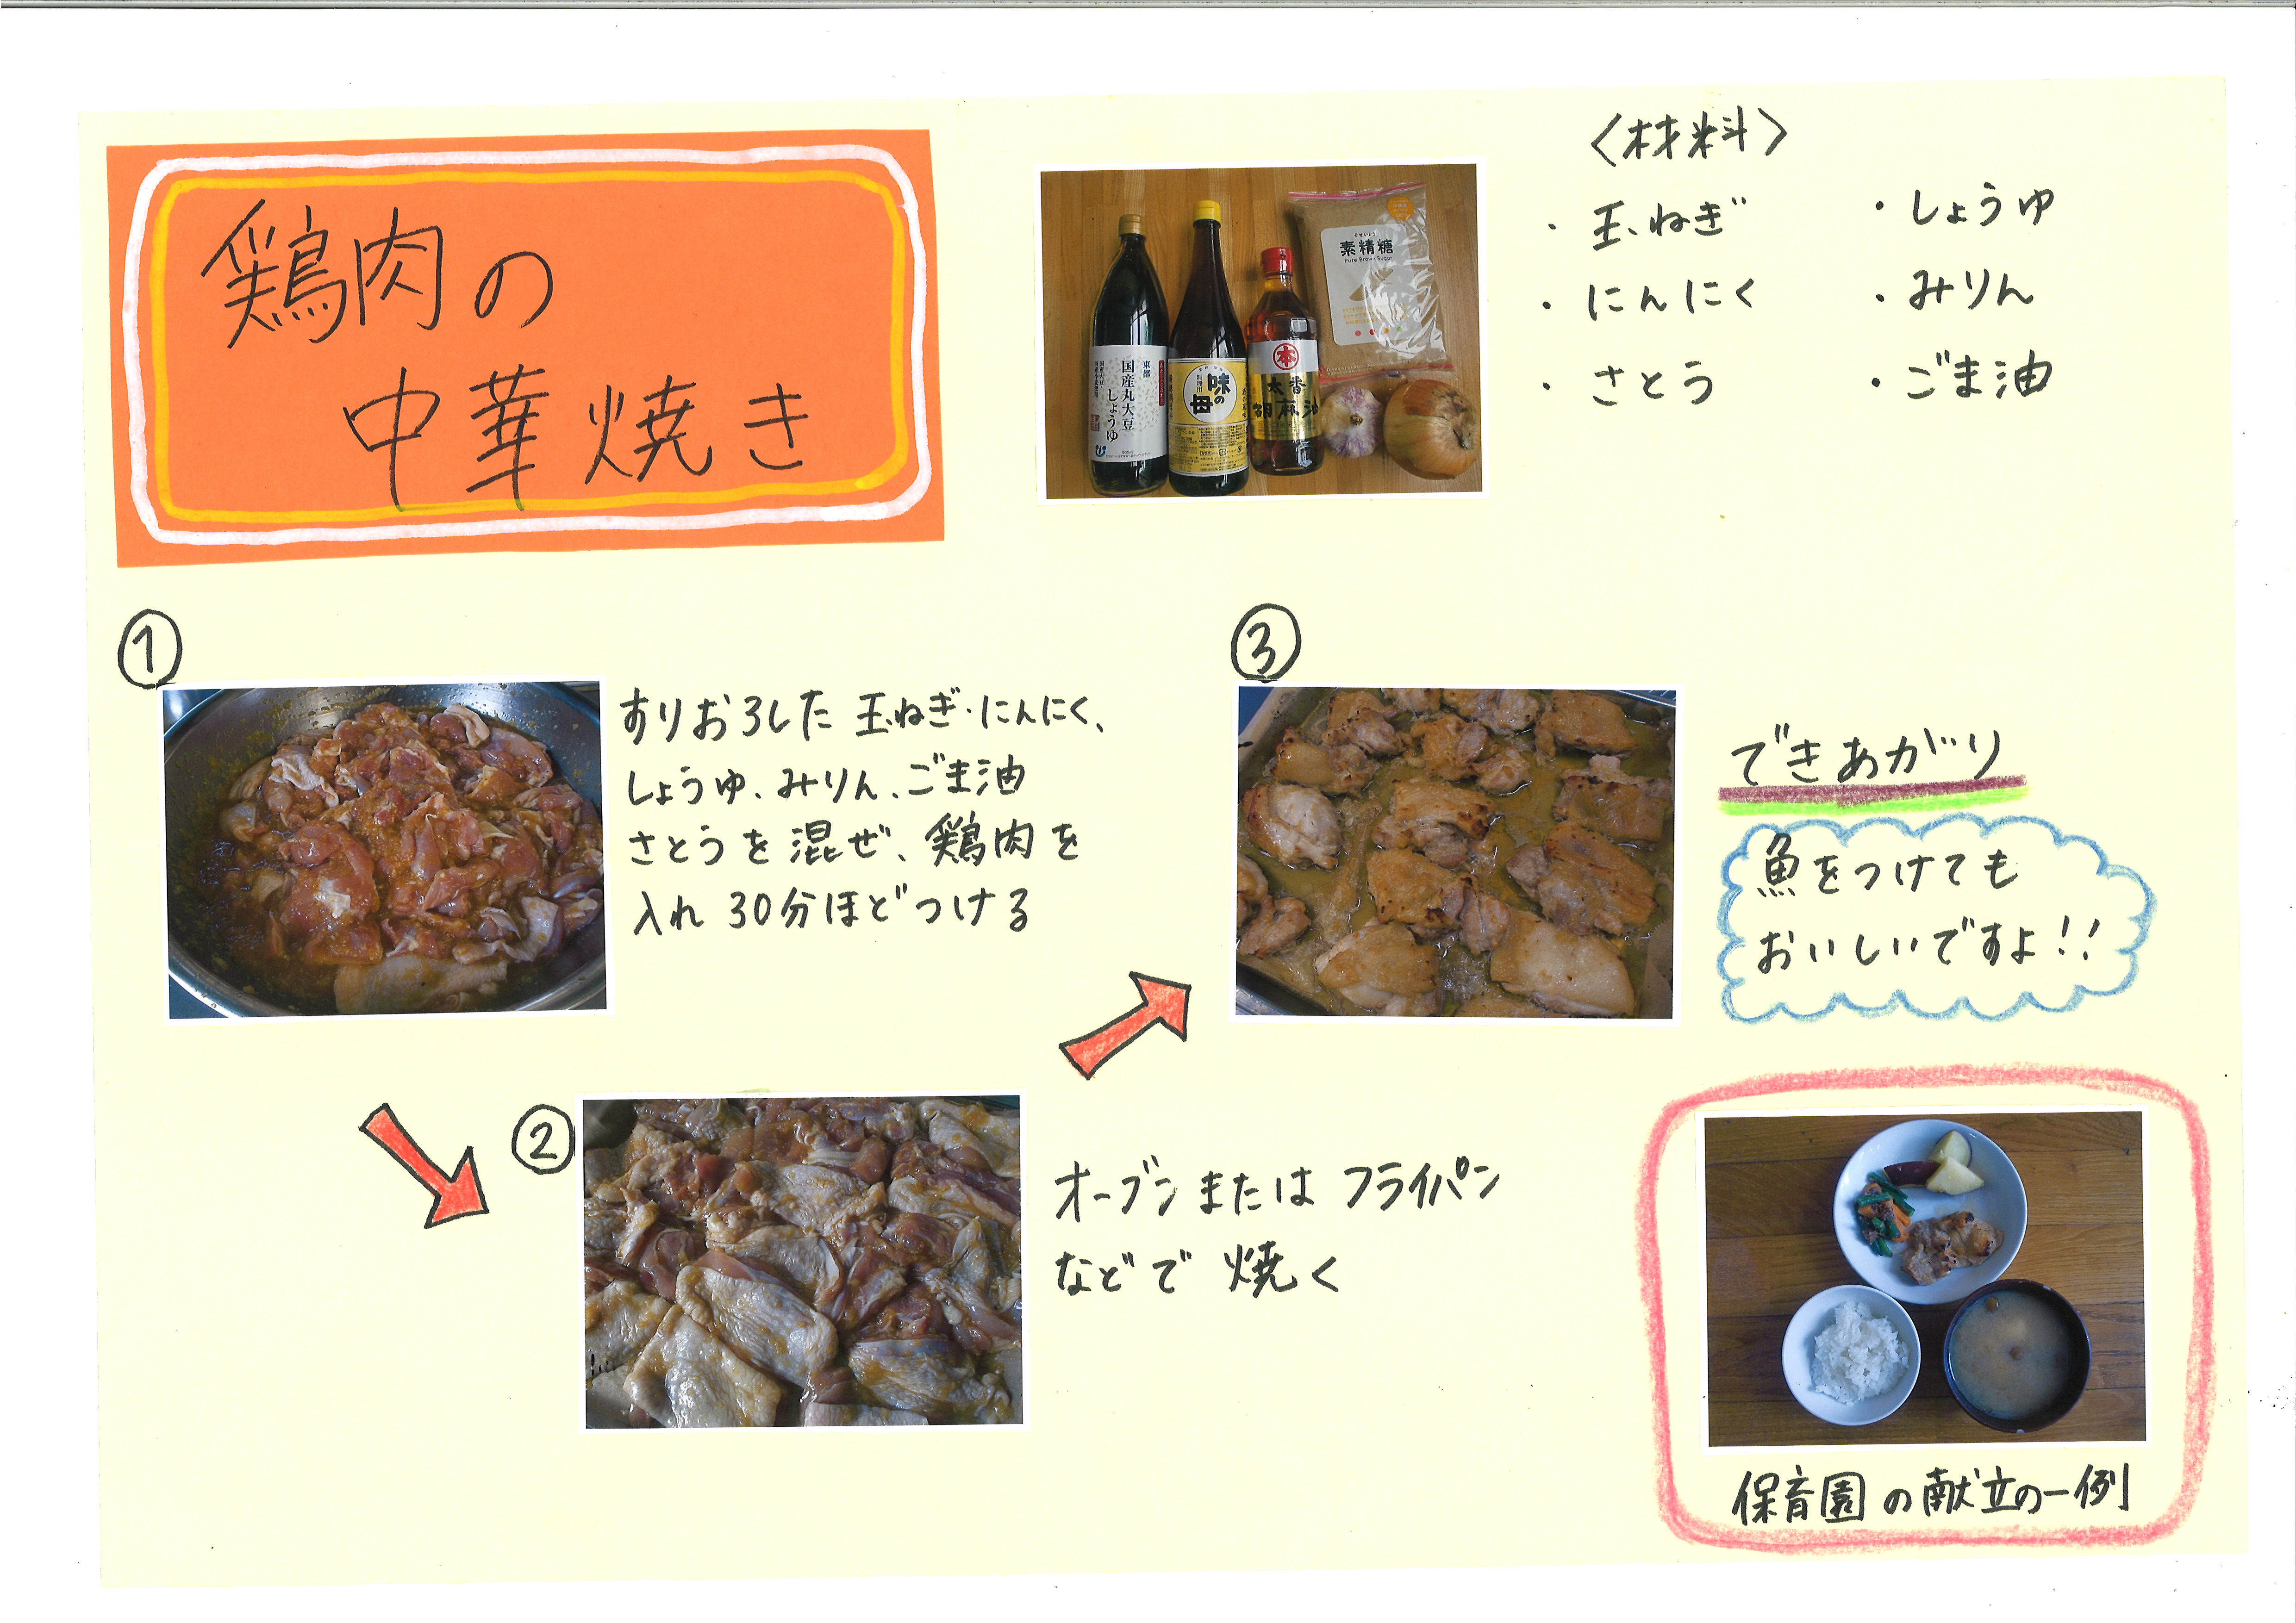 鶏肉の
中華焼き
〈材料〉
・玉ねぎ
・にんにく
・さとう
・しょうゆ
・みりん
・ごま油
素精糖
Pure Brown Sugar
国産丸大豆
しょうゆ
味の母
胡麻油
①
すりおろした玉ねぎ・にんにく、
しょうゆ、みりん、ごま油
さとうを混ぜ、鶏肉を
入れ30分ほどつける
②
オーブンまたはフライパン
などで焼く
③
できあがり
魚をつけても
おいしいですよ!!
保育園の献立の一例